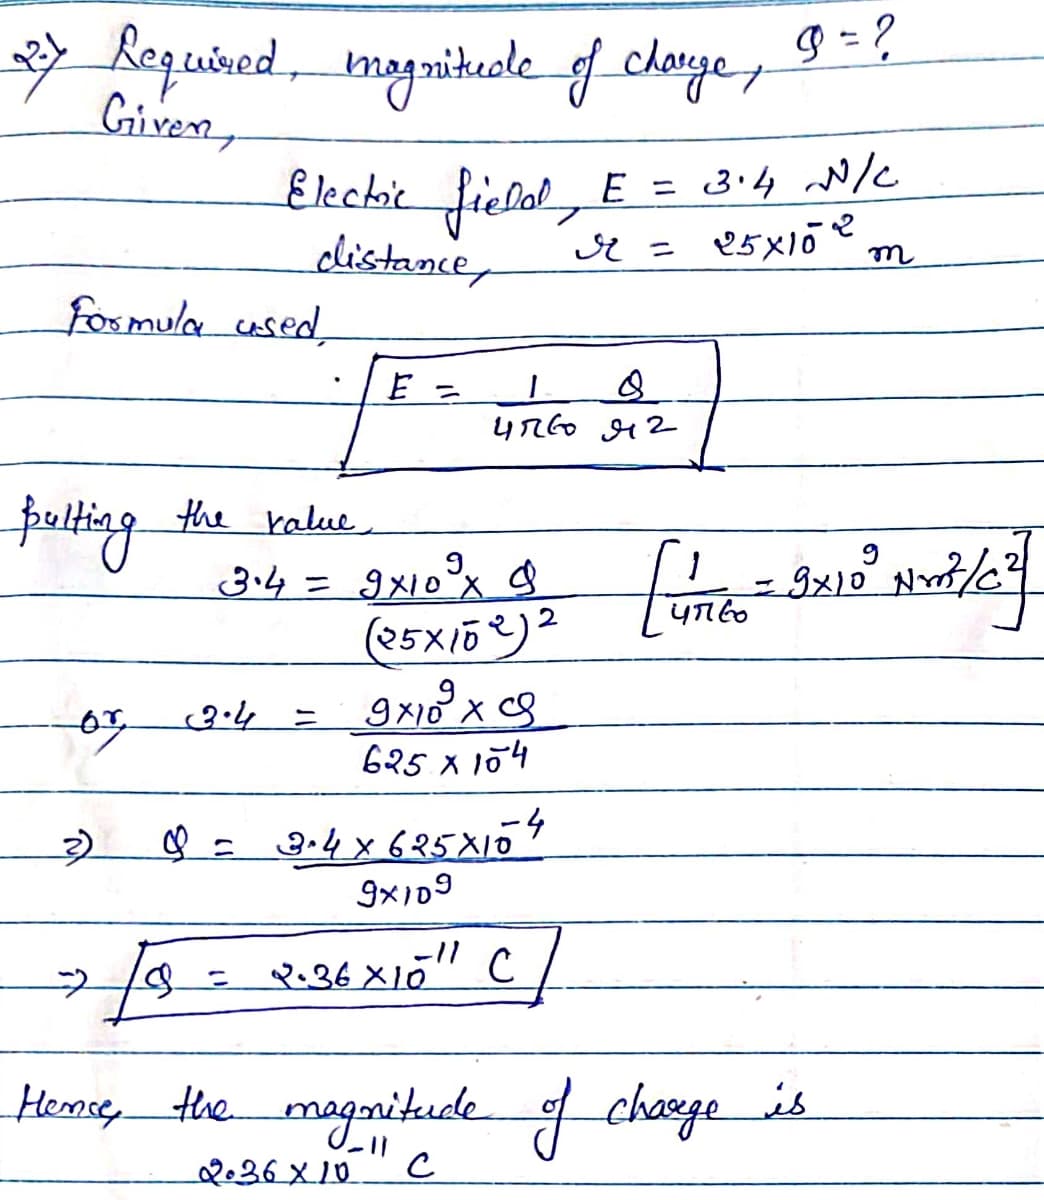 2.) Required, magnitude of charge, Q = ?
Given,
Electric field, E = 3.4 N/C
distance, r = 25×10⁻² m
Formula used,
E = 1/4πϵ0 Q/r2
putting the value,
3.4 = 9×10⁹ × Q/(25×10⁻²)² [1/4πϵ0 = 9×10⁹ Nm²/C²]
or, 3.4 = 9×10⁹ × Q/625 × 10⁻⁴
⇒ Q = 3.4 × 625×10⁻⁴/9×10⁹
⇒ Q = 2.36 ×10⁻¹¹ C
Hence, the magnitude of charge is
2.36 × 10⁻¹¹ C